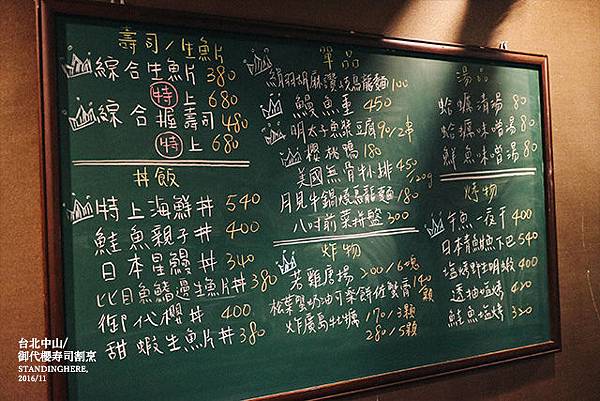 壽司/生魚片
綜合生魚片 380
特上 680
綜合握壽司 480
特上 680
丼飯
特上海鮮丼 540
鮭魚親子丼 400
日本星鰻丼 340
比目魚鰭邊生魚片丼 380
御代櫻丼 400
甜蝦生魚片丼 380
單品
胡麻讚岐烏龍麵 100
鰻魚重 450
明太子魚 豆腐 90/2串
櫻桃鴨 180
美國無骨牛小排 450/120g
月見牛鍋燒烏龍麵 180
八寸前菜拼盤 300
炸物
若雞唐揚 200/6塊
松葉蟹奶油可樂餅佐蟹膏 140/顆
炸廣島牡蠣 170/3顆
280/5顆
湯品
蛤蠣清湯 80
蛤蠣味噌湯 80
鮮魚味噌湯 80
烤物
午魚一夜干 400
日本青魽魚下巴 540
塩烤野生明蝦 400
透抽塩烤 420
鮭魚塩烤 320
台北中山/
御代櫻寿司割烹
STANDINGHERE,
2016/11